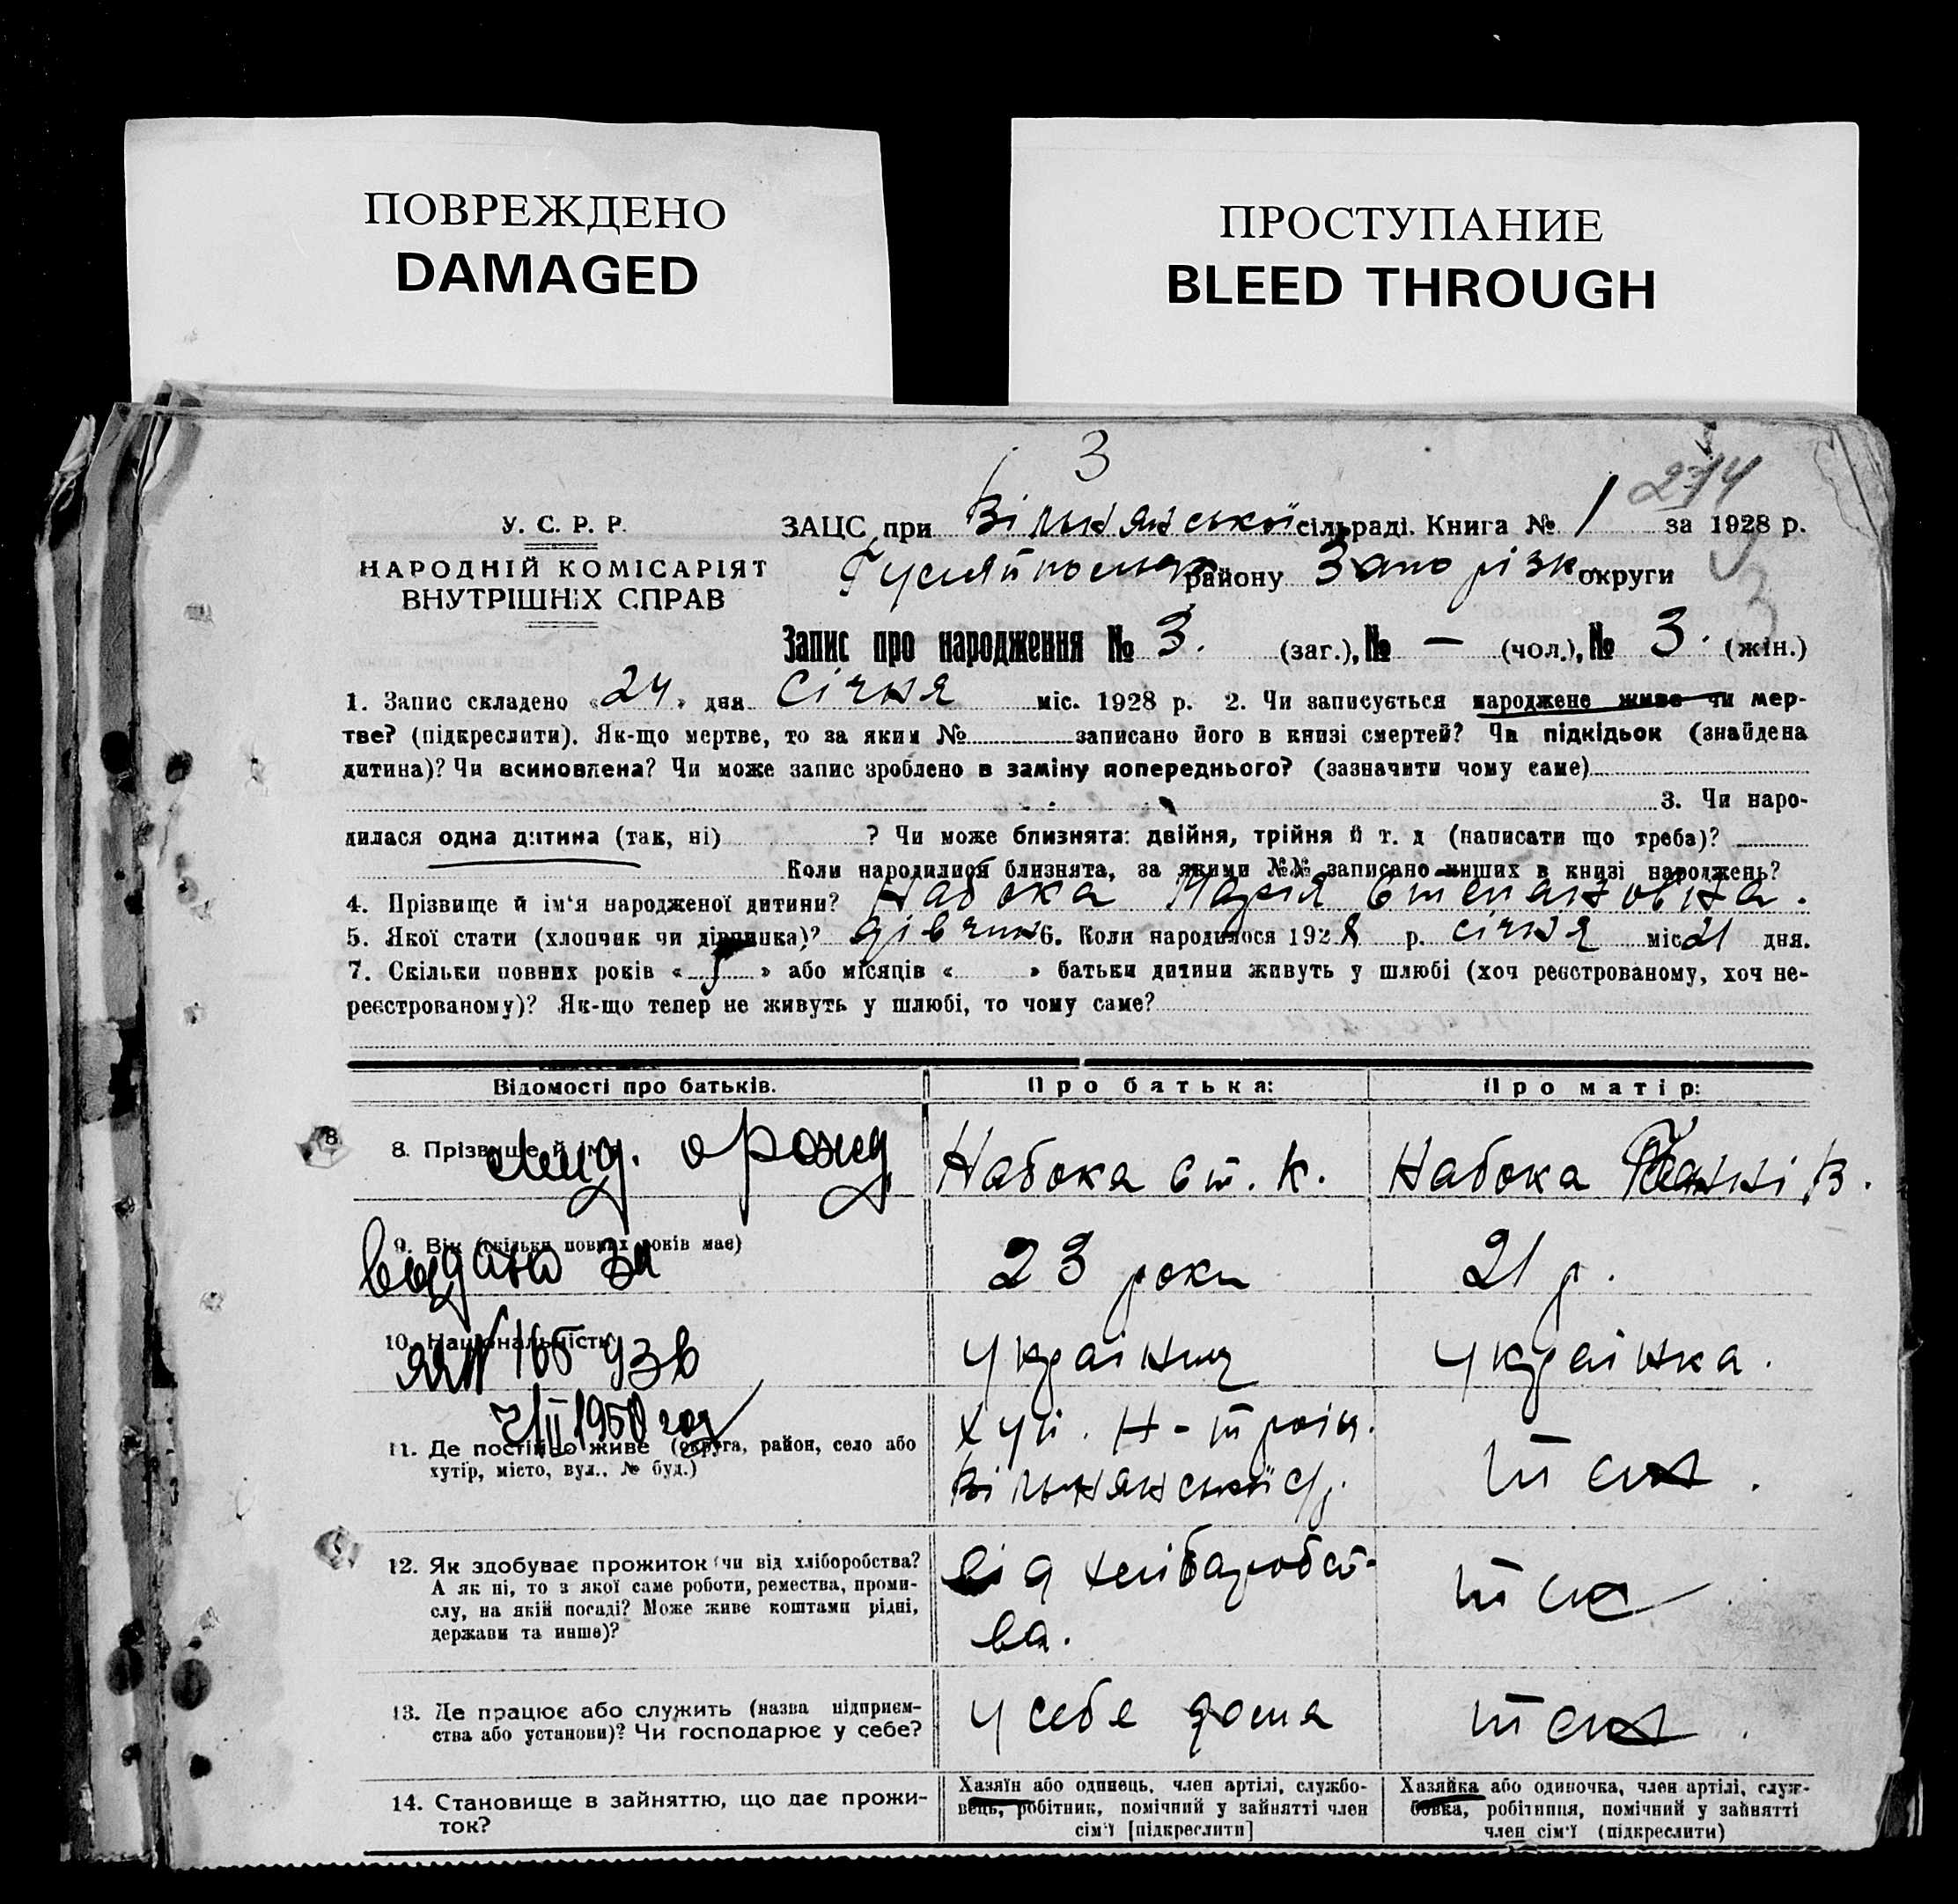 ПОВРЕЖДЕНО
DAMAGED
ПРОСТУПАНИЕ
BLEED THROUGH
3
274
У. С. Р. Р.
НАРОДНІЙ КОМІСАРІЯТ
ВНУТРІШНІХ СПРАВ
ЗАЦС при Вільнянської сільраді. Книга № 1 за 1928 р.
району Запорізк округи
3
Запис про народження № 3. (заг.), № — (чол.), № 3. (жін.)
1. Запис складено «24» дня Січня міс. 1928 р. 2. Чи записується народжене живе чи мер-
тве? (підкреслити). Як-що мертве, то за яким № записано його в книзі смертей? Чи підкідьок (знайдена
дитина)? Чи всиновлена? Чи може запис зроблено в заміну попереднього? (зазначити чому саме)
3. Чи наро-
дилася одна дитина (так, ні) ? Чи може близнята: двійня, трійня й т. д (написати що треба)?
Коли народилися близнята, за якими №№ записано инших в книзі народжень?
4. Прізвище й ім'я народженої дитини? Набока Марія Степановна.
5. Якої стати (хлопчик чи дівчинка)? дівчин 6. Коли народилося 1928 р. січня міс 21 дня.
7. Скільки повних років « » або місяців « » батьки дитини живуть у шлюбі (хоч реєстрованому, хоч не-
реєстрованому)? Як-що тепер не живуть у шлюбі, то чому саме?
Відомості про батьків.
Про батька:
Про матір:
8
8. Прізвище й ім
о рожд
Набока Ст. К.
Набока В.
9. Він (скільки повних років має)
видано за
23 роки
21 р.
10. Національність
165 узв
Українць
Українка.
II 1950 год
11. Де постійно живе (округа, район, село або
хутір, місто, вул., № буд.)
хут. Н-троїц.
Вільнянської с/р.
тож.
12. Як здобуває прожиток (чи від хліборобства?
А як ні, то з якої саме роботи, ремества, проми-
слу, на якій посаді? Може живе коштами рідні,
держави та инше)?
від хліборобст-
ва.
тож
13. Де працює або служить (назва підприєм-
ства або установи)? Чи господарює у себе?
у себе дома
тож.
14. Становище в зайняттю, що дає прожи-
ток?
Хазяїн або одинець, член артілі, службо-
вець, робітник, помічний у зайнятті член
сім'ї [підкреслити]
Хазяйка або одиночка, член артілі, служ-
бовка, робітниця, помічний у зайнятті
член сім'ї (підкреслити)